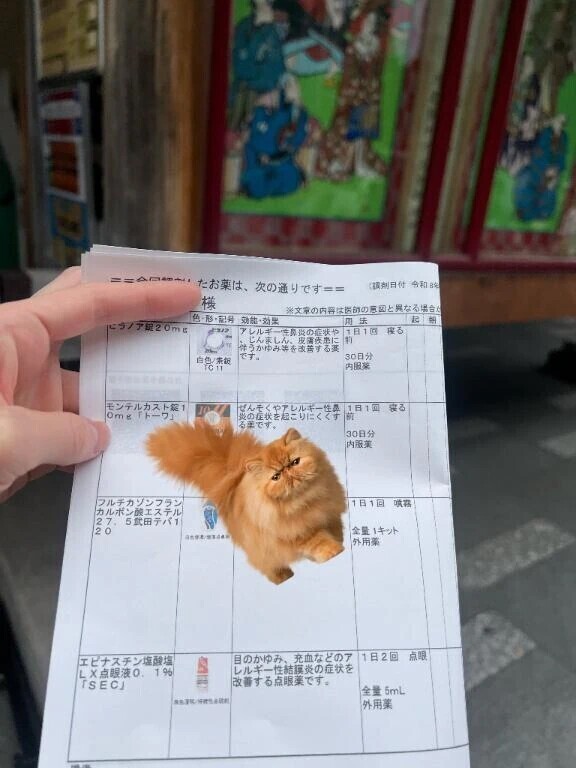 したお薬は、次の通りです＝＝
（調剤日付 令和8年
様
※文章の内容は医師の意図と異なる場合が
色・形・記号 効能・効果 用 法 起 朝
ビラノア錠20mg
白色/素錠
アレルギー性鼻炎の症状や
、じんましん、皮膚疾患に
伴うかゆみ等を改善する薬
です。
1日1回 寝る
前
30日分
内服薬
モンテルカスト錠1
0mg「トーワ」
ぜんそくやアレルギー性鼻
炎の症状を起こりにくくす
る薬です。
1日1回 寝る
前
30日分
内服薬
フルチカゾンフラン
カルボン酸エステル
27．5武田テバ1
20
1日1回 噴霧
全量1キット
外用薬
エピナスチン塩酸塩
LX点眼液0．1％
「SEC」
目のかゆみ、充血などのア
レルギー性結膜炎の症状を
改善する点眼薬です。
1日2回 点眼
全量5mL
外用薬